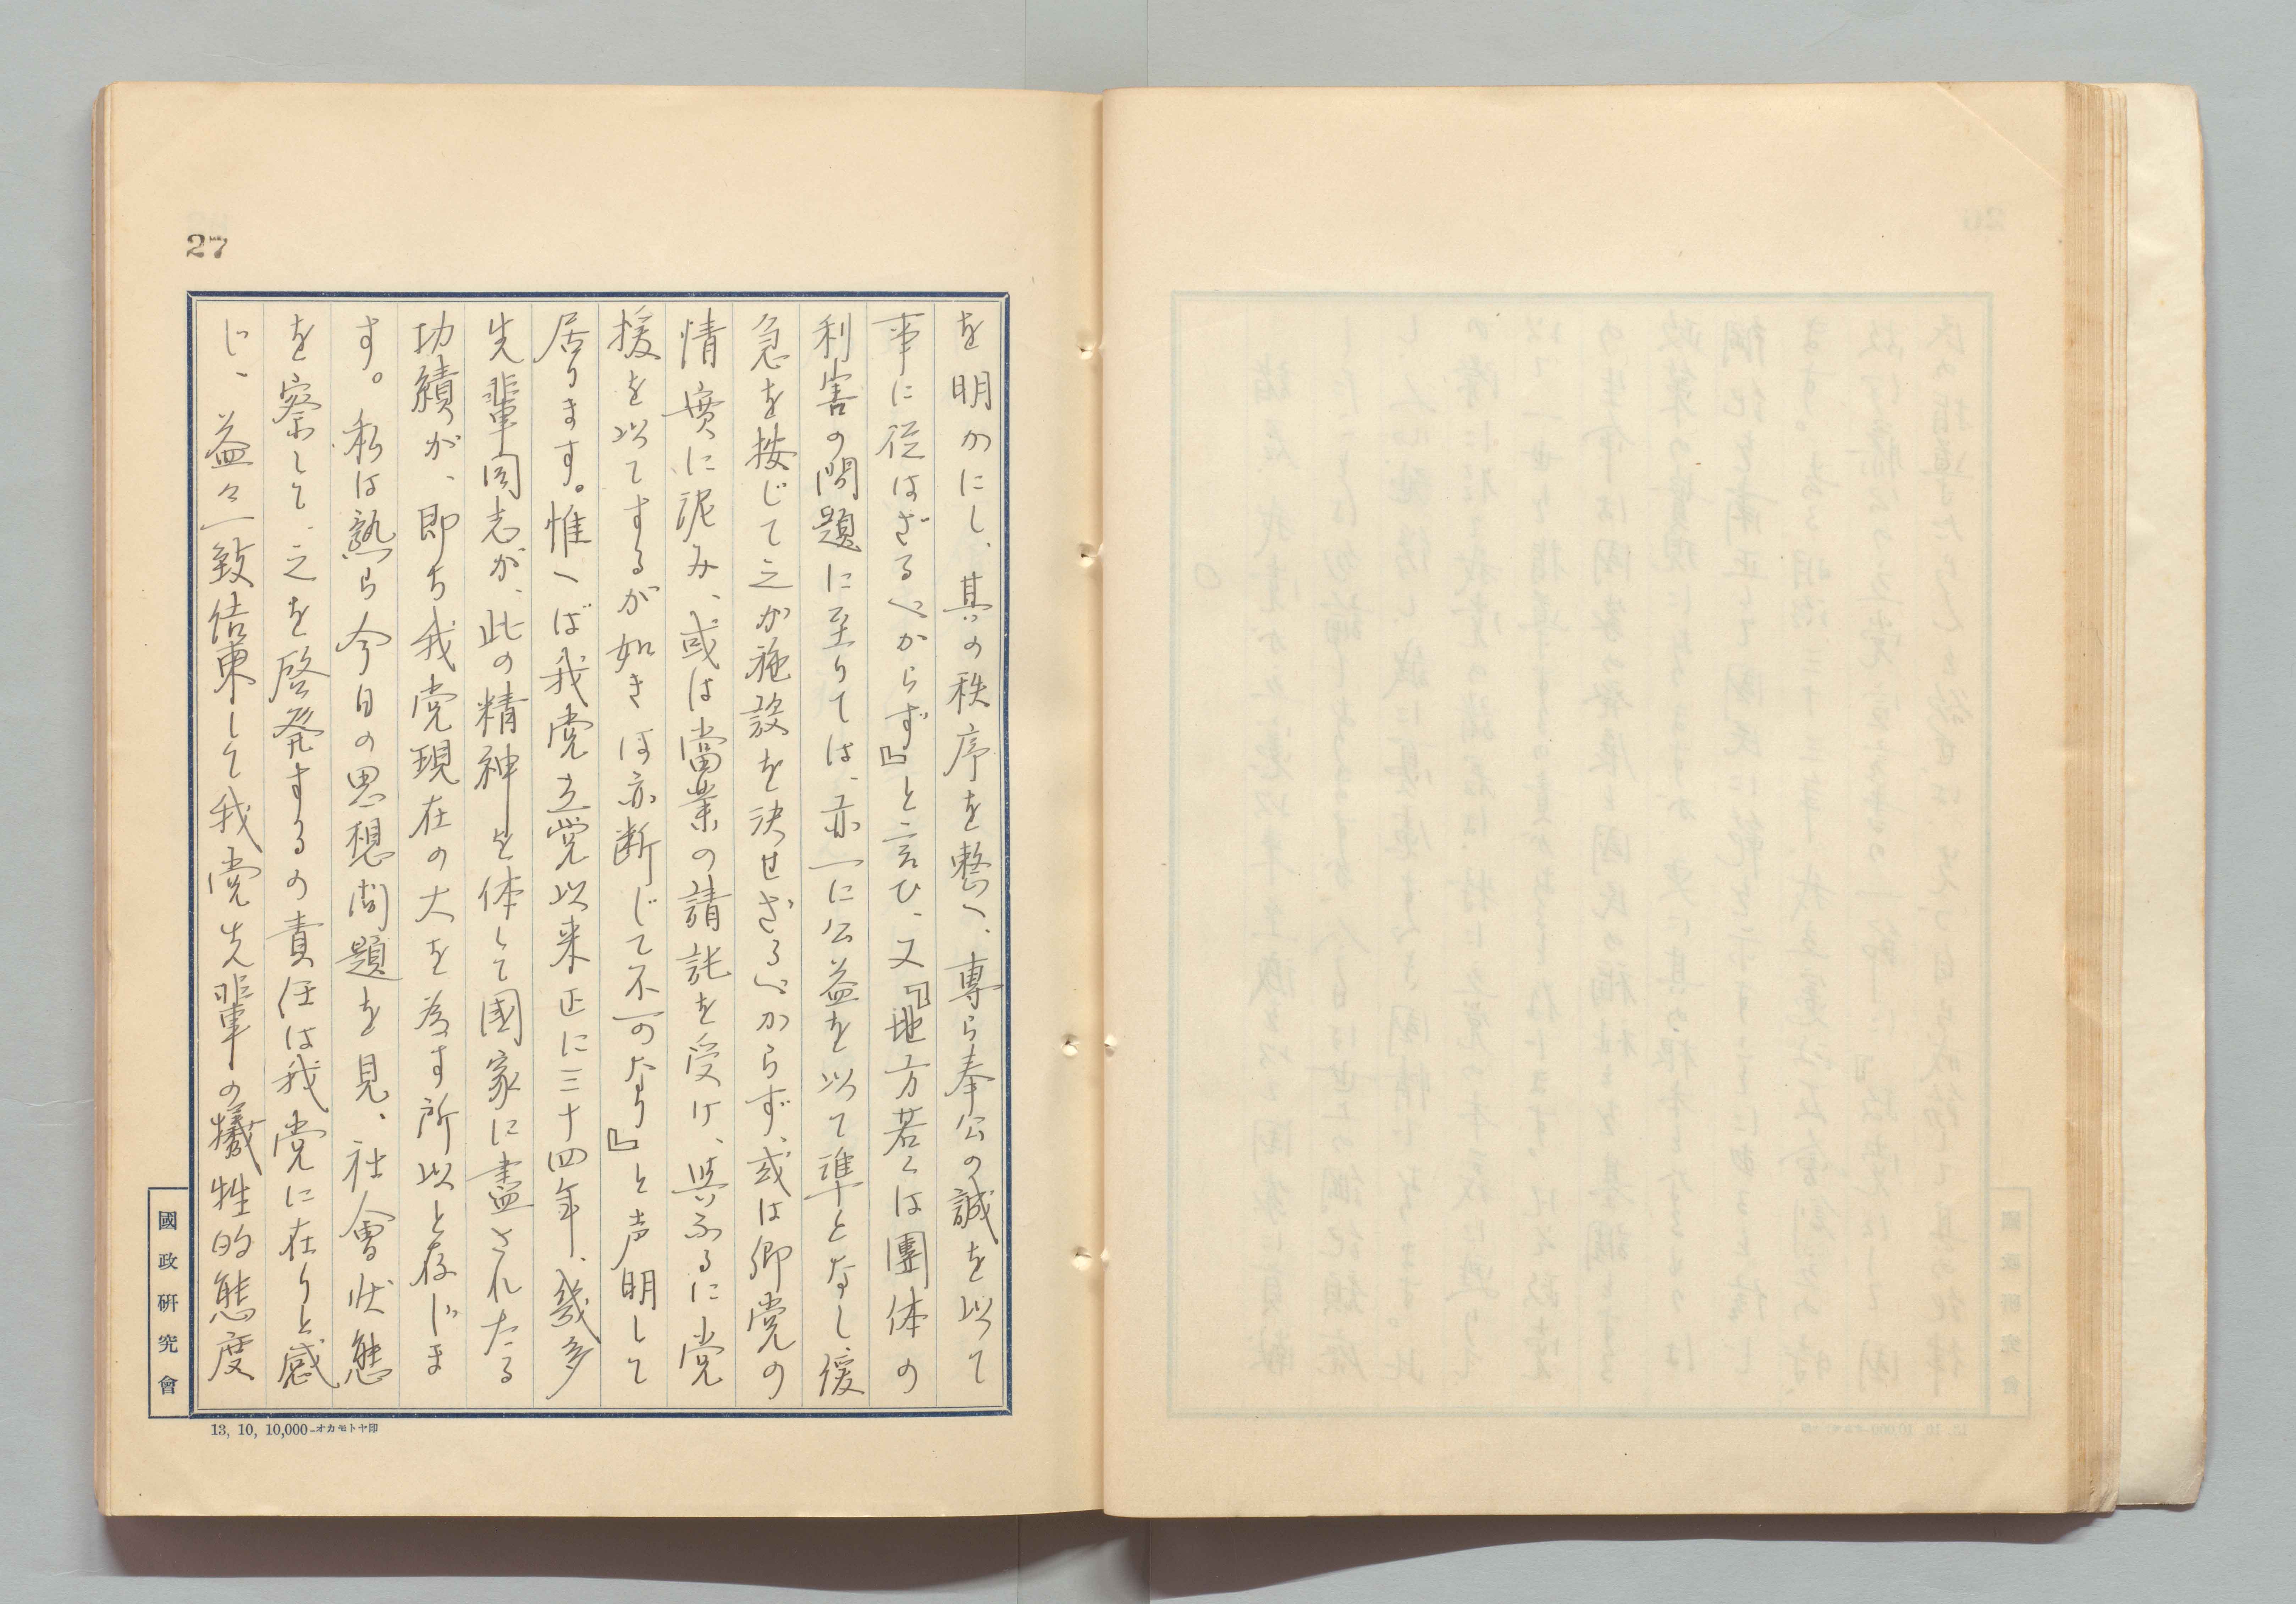 27
を明かにし、其の秩序を整へ、専ら奉公の誠を以て
事に従はざるべからず』と言ひ、又『地方若くは團体の
利害の問題に至りては、亦一に公益を以て準となし、緩
急を按じて之が施設を決せざるべからず、或は郷党の
情實に泥み、或は當業の請託を受け、與ふるに党
援を以てするが如きは亦断じて不可なり』と声明して
居ります。惟へば我党立党以来正に三十四年、幾多
先輩同志が、此の精神を体して國家に盡されたる
功績が、即ち我党現在の大を為す所以と存じま
す。私は熟ら今日の思想問題を見、社會状態
を察して、之を啓発するの責任は我党に在りと感
じ、益々一致結束して我党先輩の犠牲的態度
國政研究會
13, 10, 10,000-オカモトヤ印